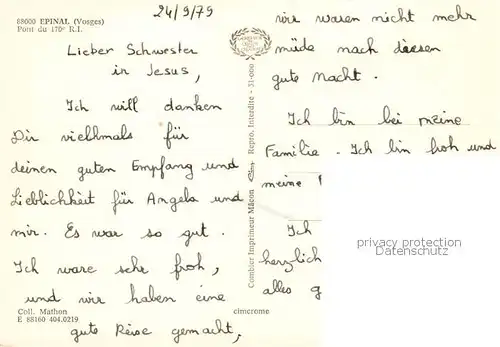 88000 EPINAL (Vosges)
Pont du 170e R.I.
24/9/79
Lieber Schwester
in Jesus,
Ich will danken
Dir vielhmals für
deinen guten Empfang und
Lieblichkeit für Angela und
mir. Es war so gut.
Ich ware sehr froh,
und wir haben eine
gute Reise gemacht,
Coll. Mathon
E 88160 404.0219
cimcrome
Combier Imprimeur Mâcon
Repro. Interdite - 31-000
wir waren nicht mehr
müde nach diesen
gute Nacht.
Ich bin bei meine
Familie. Ich bin froh und
meine
Ich
herzlich
alles g
privacy protection
Datenschutz